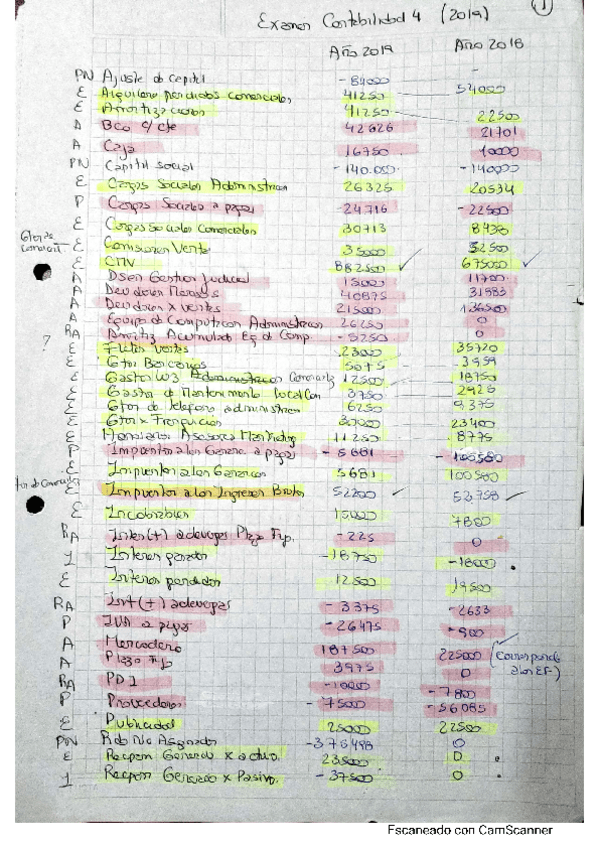 Examen Contabilidad 4 (2019) 1
Año 2019 Año 2018
PN Ajuste de capital -84000 -
E Alquileres perdidos comerciales 41250 54000
E Amortizaciones 41250 22500
A Bco c/cte 42626 21701
A Caja 16750 10000
PN Capital social -140.000 -140000
E Cargas Sociales Administracion 26325 20534
P Cargas Sociales a pagar -24716 -22500
E Cargas Sociales comerciales 30713 8438
E Comisiones Venta 35000 52500
E CMV 882500 675000
A Dsen Gestion Judicial 15000 11700
A Deudores Morosos 40875 31883
A Deudores x ventas 21500 136500
A Equipo de Computacion Administracion 26250 0
RA Amortiz Acumulada Eq de Comp. -5250 0
? E Fletes Ventas 23000 35720
E Gtos Bancarios 5075 3959
E Gastos Administracion 12500 18750
E Gastos de Mantenimiento local Com 3750 2925
E Gtos de telefono administracion 6250 9375
E Gtos x Franquicia 30000 23400
E Honorarios Asesores Marketing 11250 8775
P Impuesto a las Gananc. a pagar -5681 -100580
E Impuesto a las Ganancias 5681 100580
E Impuestos a los Ingresos Brutos 52200 52758
E Incobrables 15000 7800
RA Inter (+) a devengar Plazo Fijo. -225 0
I Interes ganado -18750 -18000
E Interes perdidos 12500 19500
RA Int (+) a devengar -3375 -2633
P IVA a pagar -26475 -900
A Mercaderia 187500 225000 (Corresponde a los EF)
A Plazo Fijo 3975 0
RA PDI -10000 -7800
P Proveedores -75000 -56085
E Publicidad 25000 22500
PN Rdos No Asignados -376498 0
E Recpam Generado x activo. 23500 0
I Recpam Generado x Pasivo. -37500 0
Escaneado con CamScanner